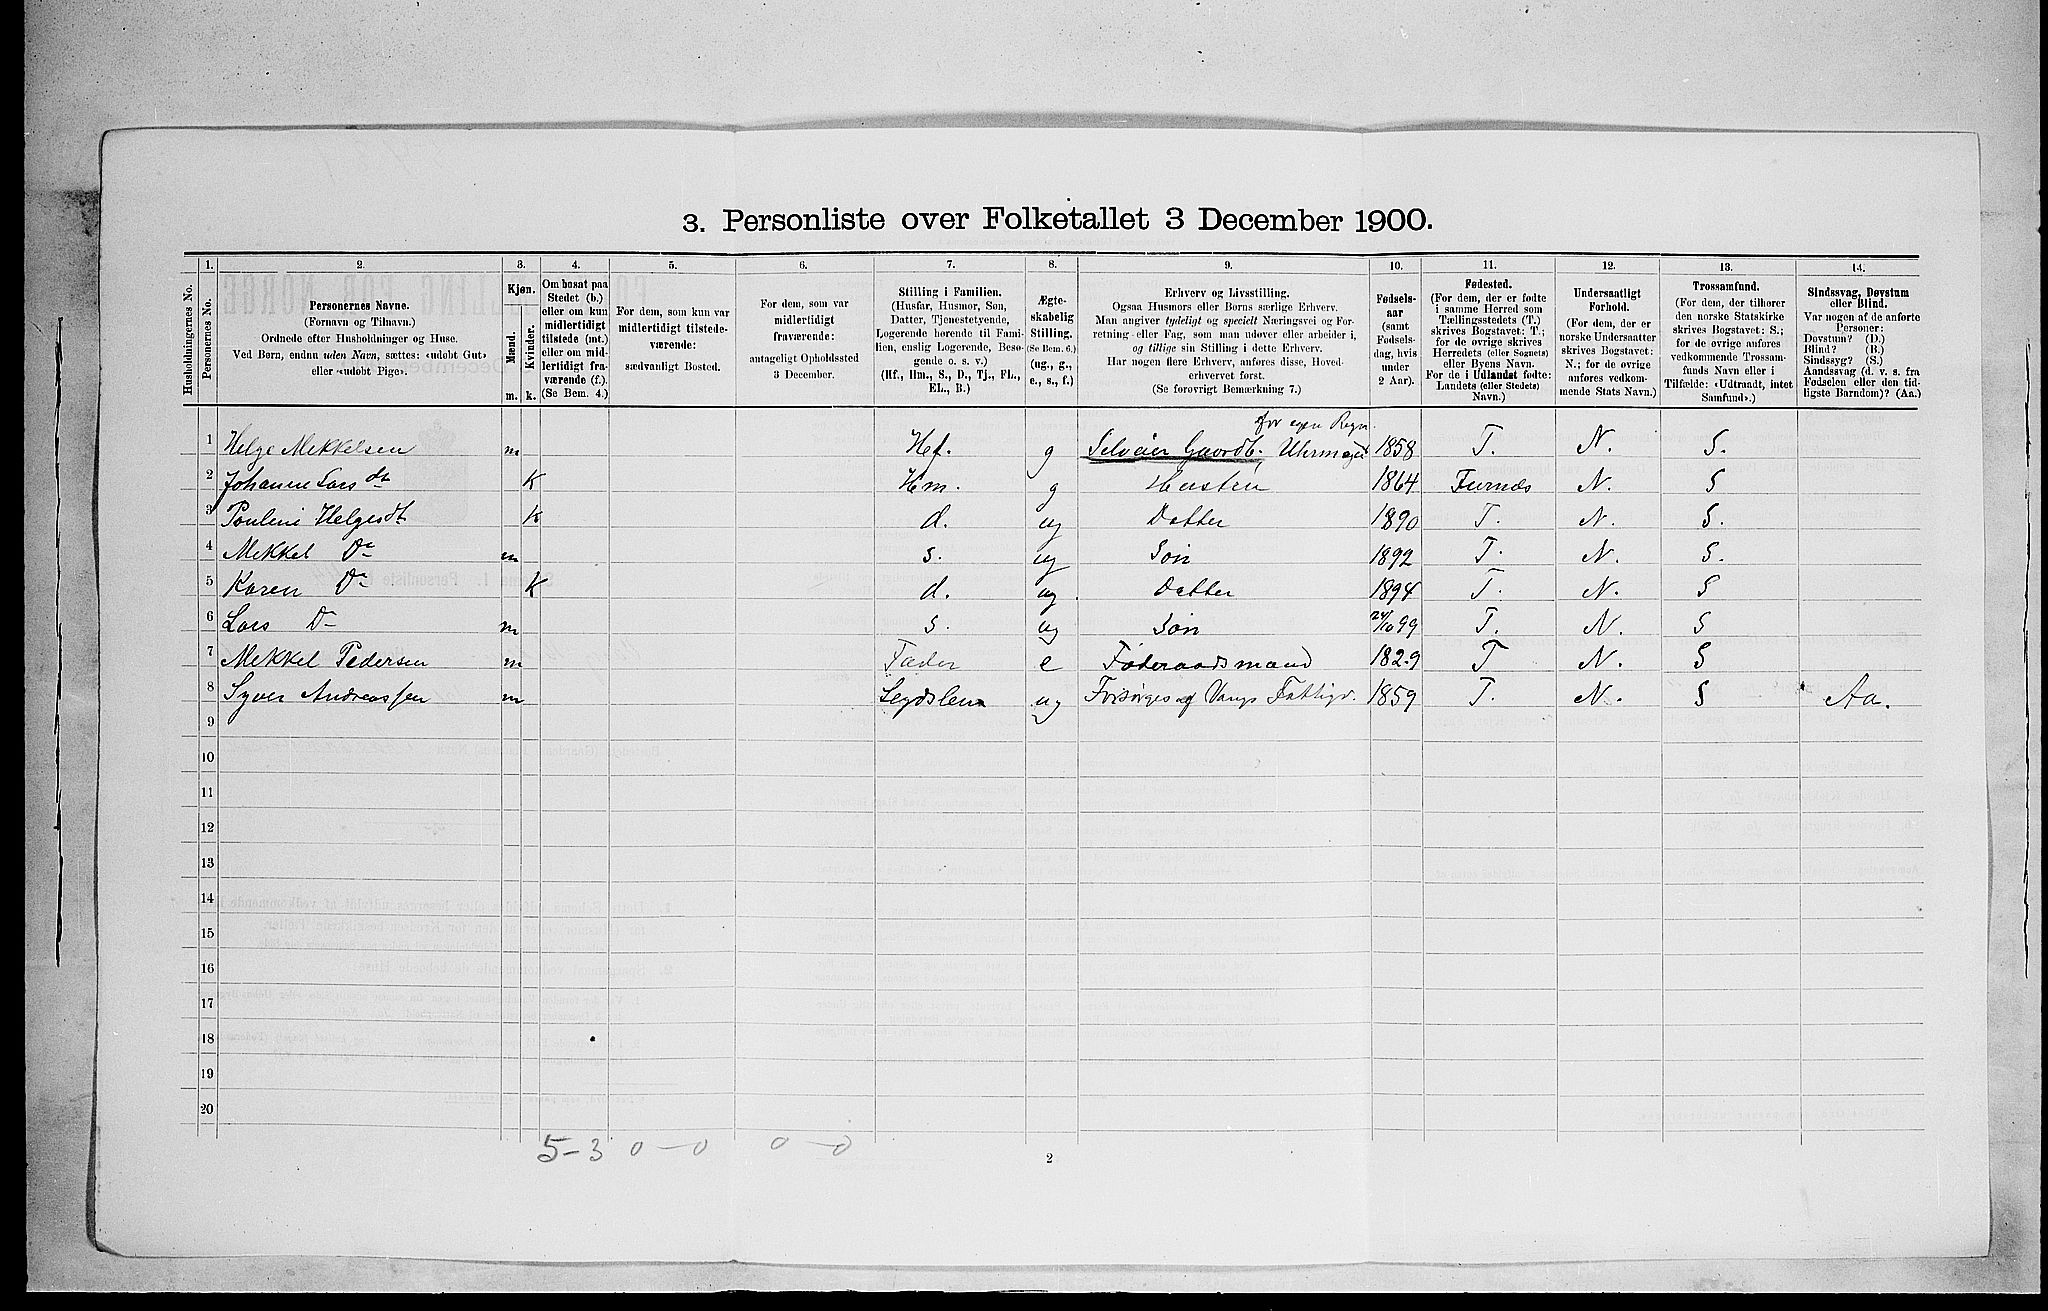 3. Personliste over Folketallet 3 December 1900.
1. 2. 3. 4. 5. 6. 7. 8. 9. 10. 11. 12. 13. 14.
Husholdningernes No.
Personernes No.
Personernes Navne.
(Fornavn og Tilnavn.)
Ordnede efter Husholdninger og Huse.
Ved Børn, endnu uden Navn, sættes: «udobt Gut»
eller «udobt Pige».
Kjøn.
Mænd. Kvinder.
m. k.
Om bosat paa
Stedet (b.)
eller om kun
midlertidigt
tilstede (mt.)
eller om mid-
lertidigt fra-
værende (f.).
(Se Bem. 4.)
For dem, som kun var
midlertidigt tilstede-
værende:
sædvanligt Bosted.
For dem, som var
midlertidigt
fraværende:
antageligt Opholdssted
3 December.
Stilling i Familien.
(Husfar, Husmor, Søn,
Datter, Tjenestetyende,
Logerende hørende til Fami-
lien, enslig Logerende, Besø-
gende o. s. v.)
(Hf., Hm., S., D., Tj., FL.,
EL., B.)
Ægte-
skabelig
Stilling.
(Se Bem. 6.)
(ug., g.,
e., s., f.)
Erhverv og Livsstilling.
Ogsaa Husmors eller Børns særlige Erhverv.
Man angiver tydeligt og specielt Næringsvei og For-
retning eller Fag, som man udøver eller arbeider i,
og tillige sin Stilling i dette Erhverv.
Har nogen flere Erhverv, anføres disse, Hoved-
erhvervet først.
(Se forøvrigt Bemærkning 7.)
Fødsels-
aar
(samt
Fødsels-
dag, hvis
under
2 Aar).
Fødested.
(For dem, der er fødte
i samme Herred som
Tællingsstedets (T.)
skrives Bogstavet: T.;
for de øvrige skrives
Herredets (eller Sognets)
eller Byens Navn.
For de i Udlandet fødte:
Landets (eller Stedets)
Navn.)
Undersaatligt
Forhold.
(For dem, der er
norske Undersaatter
skrives Bogstavet:
N.; for de øvrige
anføres vedkom-
mende Stats Navn.)
Trossamfund.
(For dem, der tilhører
den norske Statskirke
skrives Bogstavet: S.;
for de øvrige anføres
vedkommende Trossam-
funds Navn eller i
Tilfælde: «Udtraadt, intet
Samfund».)
Sindssvag, Døvstum
eller Blind.
Var nogen af de anførte
Personer:
Døvstum? (D.)
Blind? (B.)
Sindssyg? (S.)
Aandssvag (d. v. s. fra
Fødselen eller den tid-
ligste Barndom)? (Aa.)
for egen Regn.
1 Helge Mikkelsen m Hf. g Selveier Gaardb. Uhrmager 1858 T. N. S.
2 Johanne Larsdt K Hm. g Hustru 1864 Furnæs N. S
3 Pouline Helgesdt K d. ug Datter 1890 T. N. S.
4 Mikkel Do m s. ug Søn 1892 T. N. S.
5 Karen Do K d. ug. Datter 1894 T. N. S
6 Lars D- m s. ug Søn 24/10 99 T. N. S
7 Mikkel Pedersen m Fader e Føderaadsmand 1829 T N. S
8 Syver Andreassen m Legdslem ug Forsørges af Vangs Fattigv. 1859 T. N. S Aa.
9
10
11
12
13
14
15
16
17
18
19
20
5-3 0-0 0-0
2